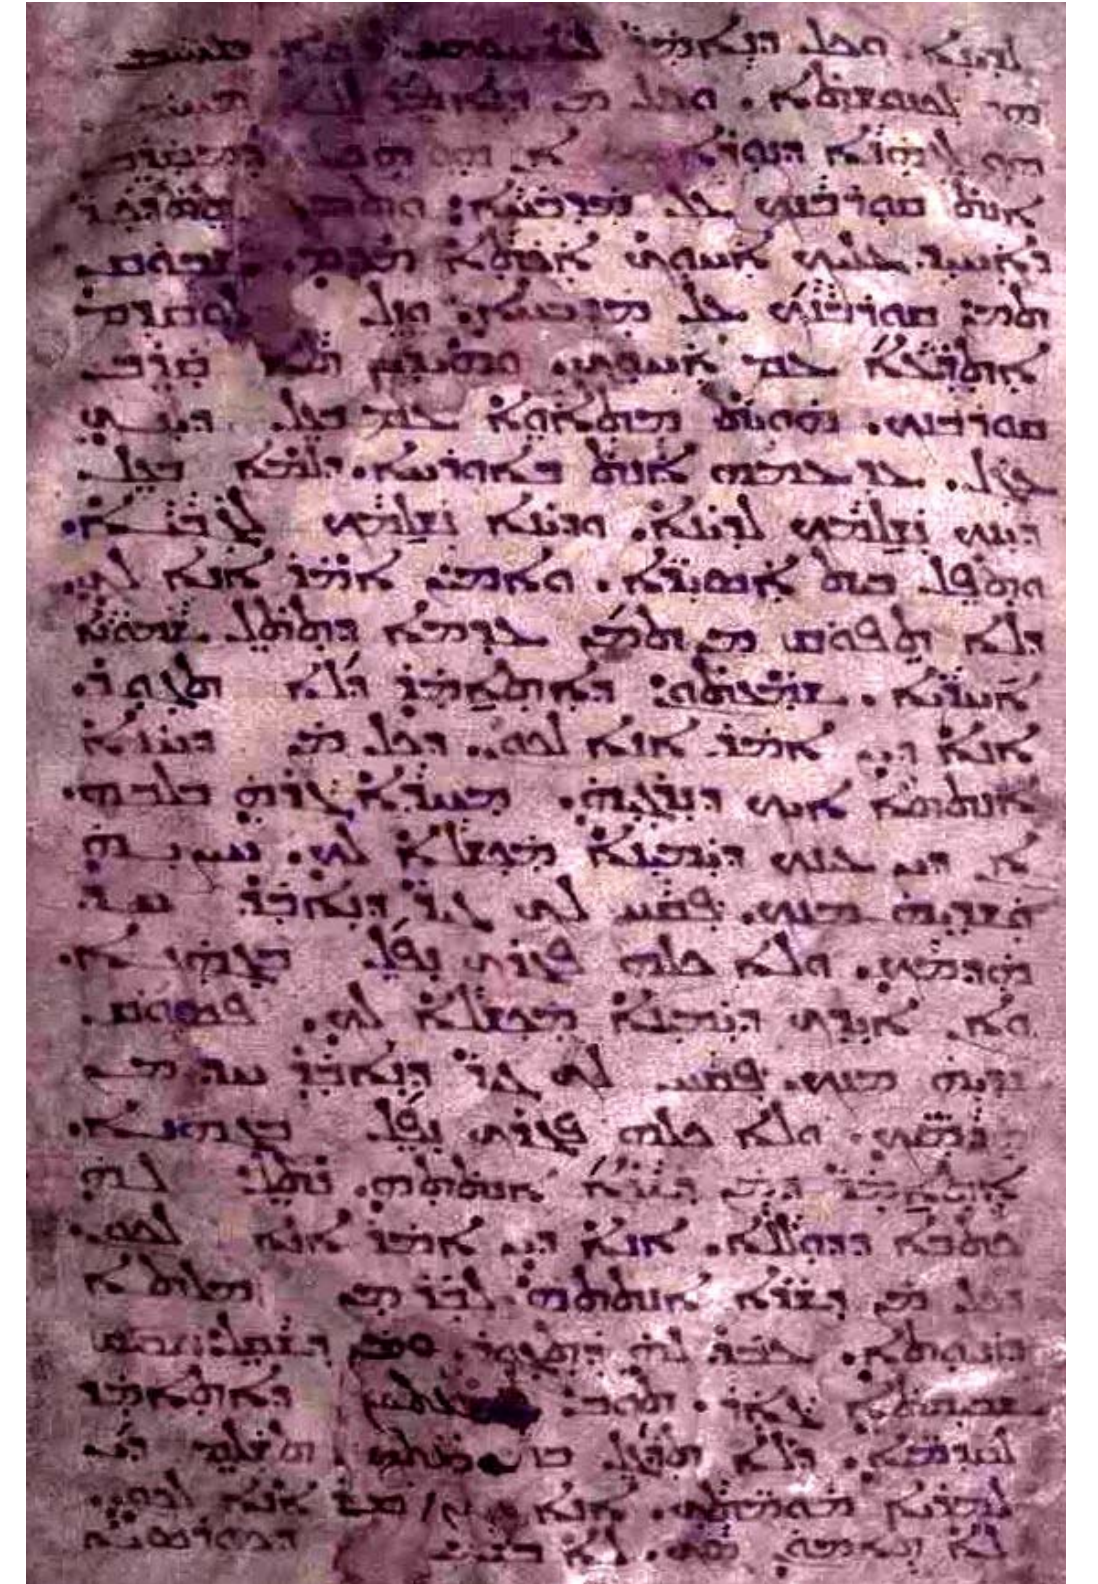 ܠܕܝܢܐ. ܘܟܠ ܕܢܐܡܪ
ܗܘ ܠܟܢܘܫܬܐ. ܘܟܠ ܡܢ ܕܢܐܡܪ
ܗܘ ܠܓܗܢܐ ܕܢܘܪܐ
ܐܢܬ ܩܘܪܒܢܟ ܥܠ ܡܕܒܚܐ:
ܕܐܚܝܕ ܥܠܝܟ ܐܚܘܟ ܐܟܬܐ ܡܕܡ. ܫܒܘܩ
ܬܡܢ ܩܘܪܒܢܟ ܥܠ ܡܕܒܚܐ. ܘܙܠ ܠܘܩܕܡ
ܐܬܪܥܐ ܥܡ ܐܚܘܟ. ܘܗܝܕܝܢ ܬܐ ܩܪܒ
ܩܘܪܒܢܟ. ܗܘܝܬ ܡܬܐܘܐ ܥܡ ܒܥܠ ܕܝܢܟ
ܥܓܠ. ܥܕ ܥܡܗ ܐܢܬ ܒܐܘܪܚܐ. ܕܠܡܐ ܒܥܠ
ܕܝܢܟ ܢܫܠܡܟ ܠܕܝܢܐ. ܘܕܝܢܐ ܢܫܠܡܟ ܠܓܒܝܐ.
ܘܬܦܠ ܒܝܬ ܐܣܝܪܐ. ܘܐܡܝܢ ܐܡܪ ܐܢܐ ܠܟ.
ܕܠܐ ܬܦܘܩ ܡܢ ܬܡܢ ܥܕܡܐ ܕܬܬܠ ܫܡܘܢܐ
ܐܚܪܝܐ. ܫܡܥܬܘܢ ܕܐܬܐܡܪ ܕܠܐ ܬܓܘܪ.
ܐܢܐ ܕܝܢ ܐܡܪ ܐܢܐ ܠܟܘܢ. ܕܟܠ ܡܢ ܕܚܙܐ
ܐܢܬܬܐ ܐܝܟ ܕܢܪܓܝܗ. ܡܚܕܐ ܓܪܗ ܒܠܒܗ.
ܐܢ ܕܝܢ ܥܝܢܟ ܕܝܡܝܢܐ ܡܟܫܠܐ ܠܟ. ܚܨܝܗ
ܘܫܕܝܗ ܡܢܟ. ܦܩܚ ܠܟ ܓܝܪ ܕܢܐܒܕ ܚܕ
ܗܕܡܟ. ܘܠܐ ܟܠܗ ܦܓܪܟ ܢܦܠ ܒܓܗܢܐ.
ܘܐܢ ܐܝܕܟ ܕܝܡܝܢܐ ܡܟܫܠܐ ܠܟ. ܦܣܘܩ
ܫܕܝܗ ܡܢܟ. ܦܩܚ ܠܟ ܓܝܪ ܕܢܐܒܕ ܚܕ ܡܢ
ܗܕܡܝܟ. ܘܠܐ ܟܠܗ ܦܓܪܟ ܢܦܠ ܒܓܗܢܐ.
ܐܬܐܡܪ ܕܡܢ ܕܫܪܐ ܐܢܬܬܗ. ܢܬܠ ܠܗ
ܟܬܒܐ ܕܕܘܠܠܐ. ܐܢܐ ܕܝܢ ܐܡܪ ܐܢܐ ܠܟܘܢ.
ܕܟܠ ܡܢ ܕܫܪܐ ܐܢܬܬܗ ܠܒܪ ܡܢ ܡܠܬܐ
ܕܙܢܝܘܬܐ. ܥܒܕ ܠܗ ܕܬܓܘܪ. ܘܡܢ ܕܫܩܠ
ܫܒܝܩܬܐ ܓܐܪ. ܬܘܒ ܫܡܥܬܘܢ ܕܐܬܐܡܪ
ܠܩܕܡܝܐ. ܕܠܐ ܬܕܓܠ ܒܡܘܡܬܟ. ܬܫܠܡ ܕܝܢ
ܠܡܪܝܐ ܡܘܡܬܟ. ܐܢܐ ܕܝܢ ܐܡܪ ܐܢܐ ܠܟܘܢ.
ܠܐ ܬܐܡܘܢ ܣܟ. ܠܐ ܒܫܡܝܐ ܕܟܘܪܣܝܐ